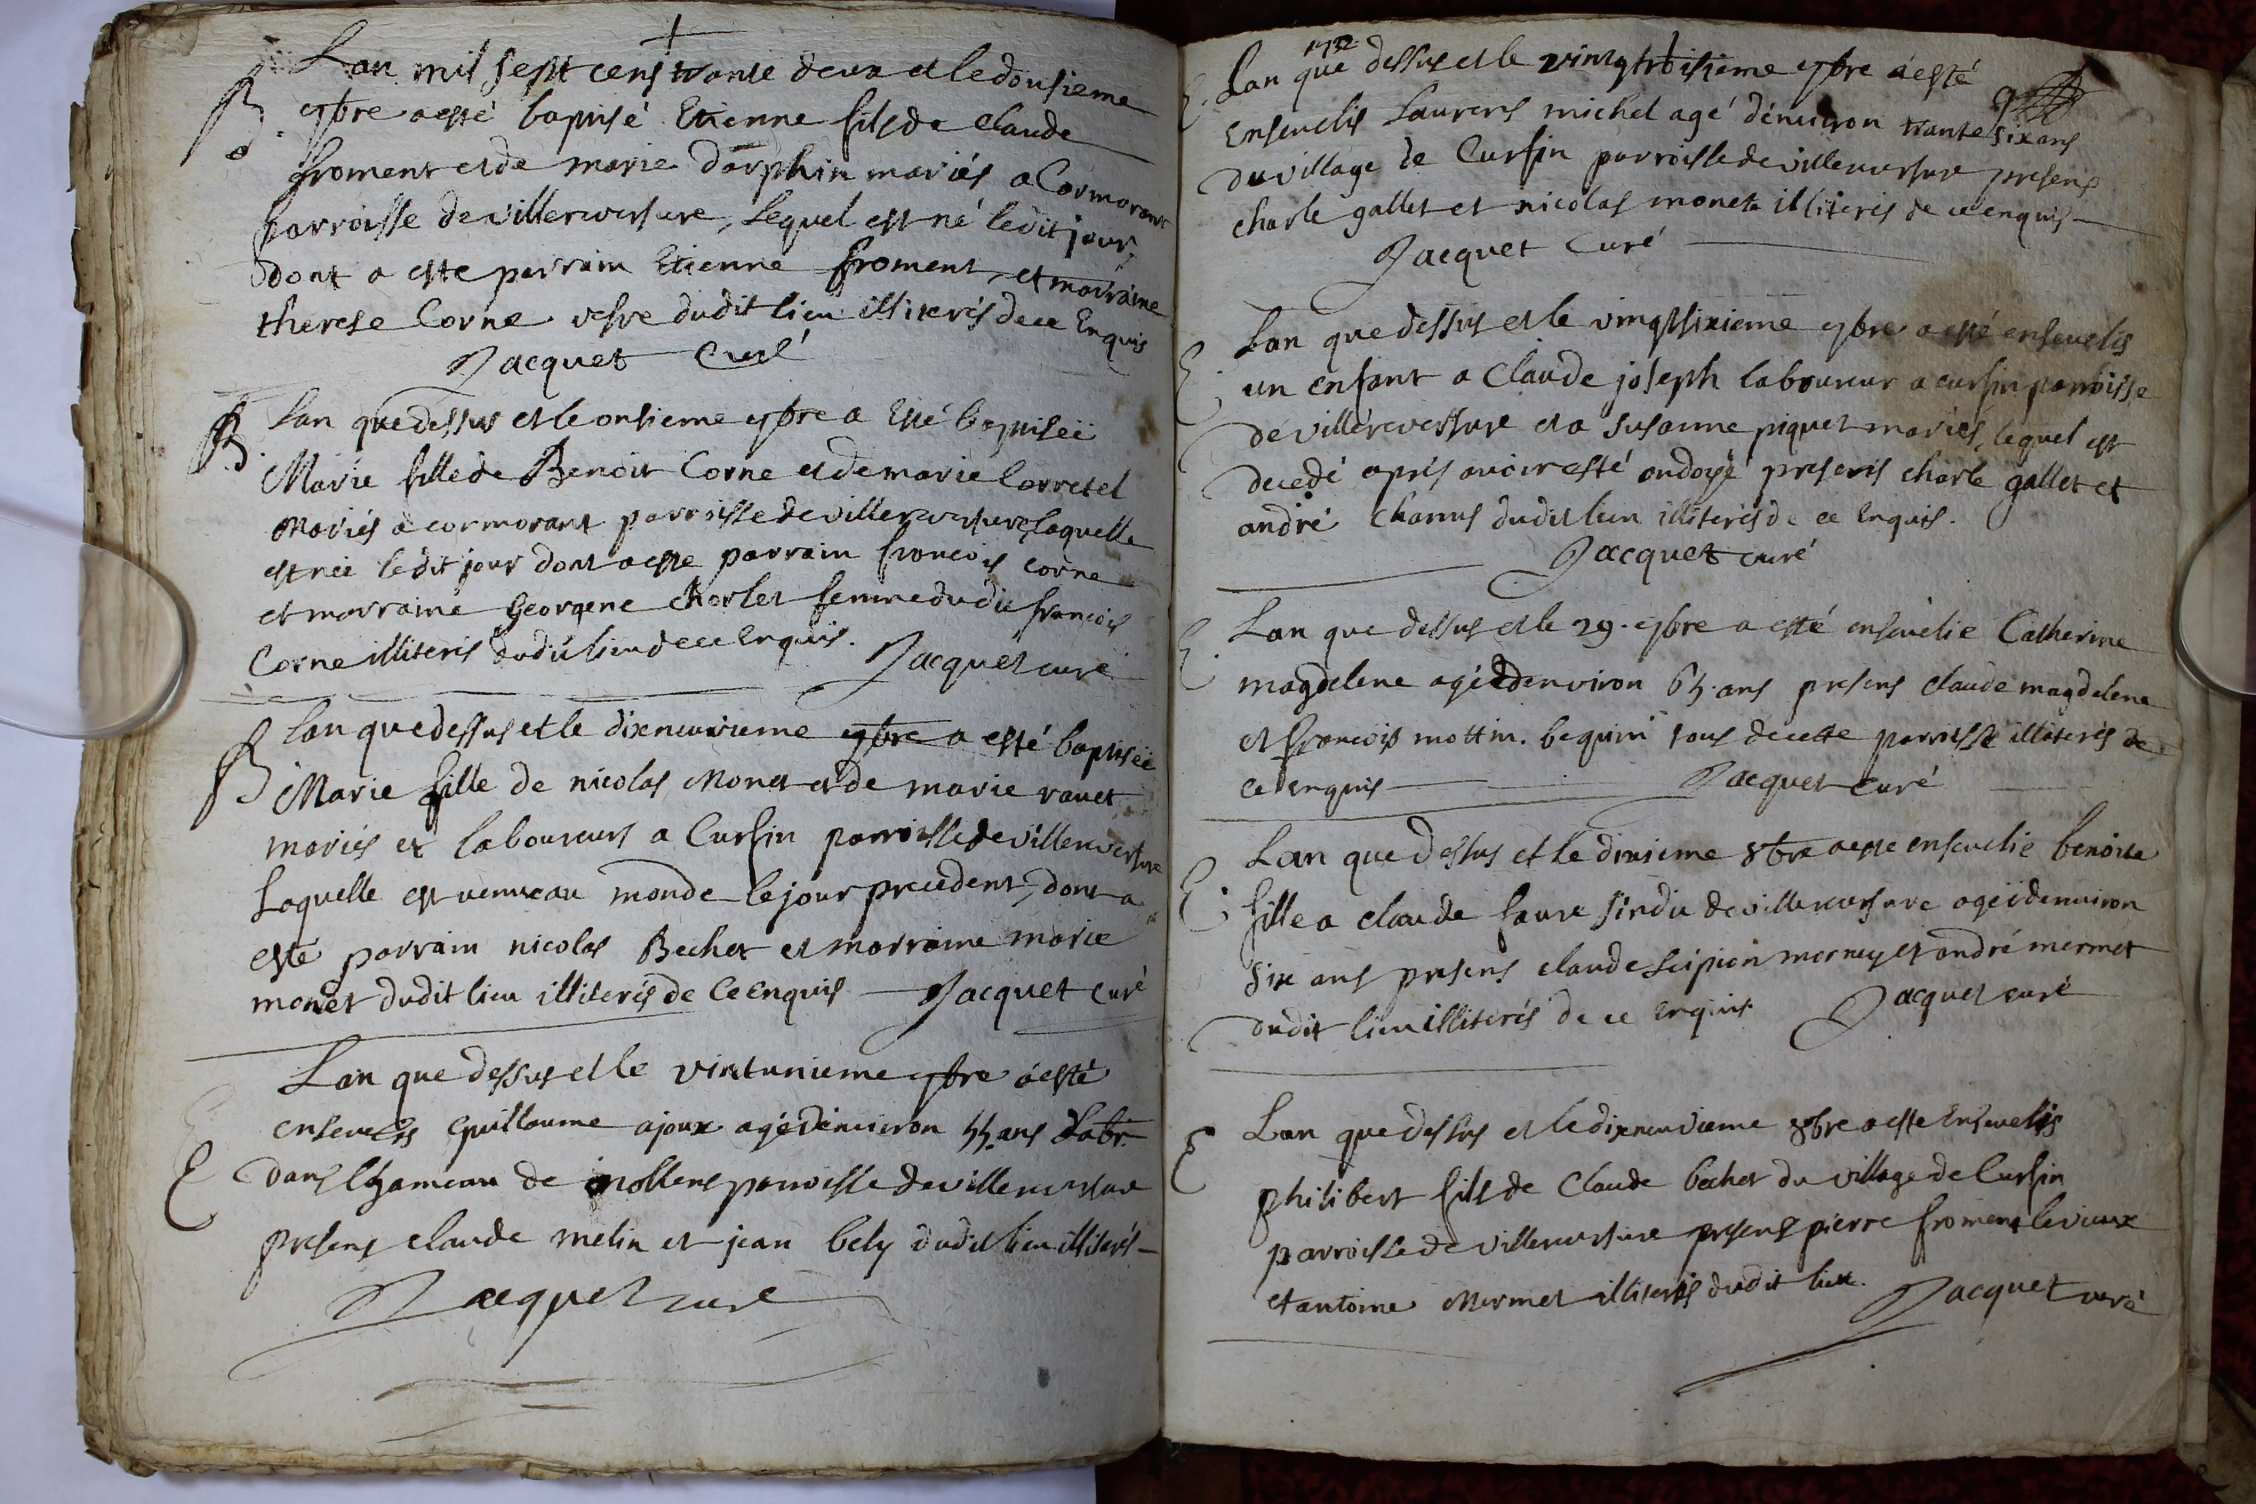 Lan mil sept cens trante deux et le dousieme
B. 9bre a esté baptisé Etienne fils de Claude
froment et de marie dorphin mariés a Cormorant
parroisse de villereversure, Lequel est né ledit jour,
dont a esté parrain Etienne froment, et marraine
therese Corne vefve dudit lieu illiterés de ce Enquis
Jacquet Curé
B. Lan que dessus et le onsieme 9bre a Esté baptiseé
Marie fille de Benoit Corne et de marie Corretel
Mariés a cormorant parroisse de villereversure, laquelle
est neé ledit jour dont a esté parrain francois corne
et marraine Georgene Charlet femme dudit francois
Corne illiterés dudit lieu de ce Enquis. Jacquet curé
B Lan que dessus et le dixneuvieme 9bre a esté baptiseé
Marie fille de nicolas Monet et de marie ravet
mariés et laboureurs a Cursin parroisse de villereversure
Laquelle est venue au monde le jour precedent, dont a
esté parrain nicolas Bechet et marraine marie
monet dudit lieu illiterés de Ce Enquis Jacquet curé
Lan que dessus et le vintunieme 9bre a esté
ensevelis guillaume ajoux agé denviron 55 ans
E dans lhameau de nollens parroisse de villereversure
presens claude melin et jean bely dudit lieu illiterés
Jacquet curé
1732
E. Lan que dessus et le vingtroisieme 9bre a esté
Ensevelis Laurens michel agé denviron trante six ans
du village de Cursin parroisse de villereversure presens
charle gallet et nicolas monet illiterés de ce enquis
Jacquet Curé
E. Lan que dessus et le vingtsixieme 9bre a esté ensevelis
un enfant a Claude joseph laboureur a cursin parroisse
de villereversure et a susanne piquet mariés, lequel est
decedé aprés avoir esté ondoyé presens charle gallet et
andré Chanus dudit lieu illiterés de ce Enquis.
Jacquet curé
E. Lan que dessus et le 29. 9bre a esté ensevelie Catherine
magdelene ageé denviron 65. ans presens claude magdelene
et francois mottin. bequin tous de cette parroisse illiterés de
ce enquis Jacquet curé
E. Lan que dessus et le dixieme 8bre a esté ensevelie benoite
fille a claude faure sindic de villereversure ageé denviron
six ans presens claude scipion mornay et andré mermet
dudit lieu illiterés de ce enquis Jacquet curé
E Lan que dessus et le dixneuvieme 8bre a esté Ensevelis
philibert fils de Claude bechet du village de Cursin
parroisse de villereversure presens pierre froment le vieux
et antoine Mermet illiterés dudit lieu. Jacquet curé